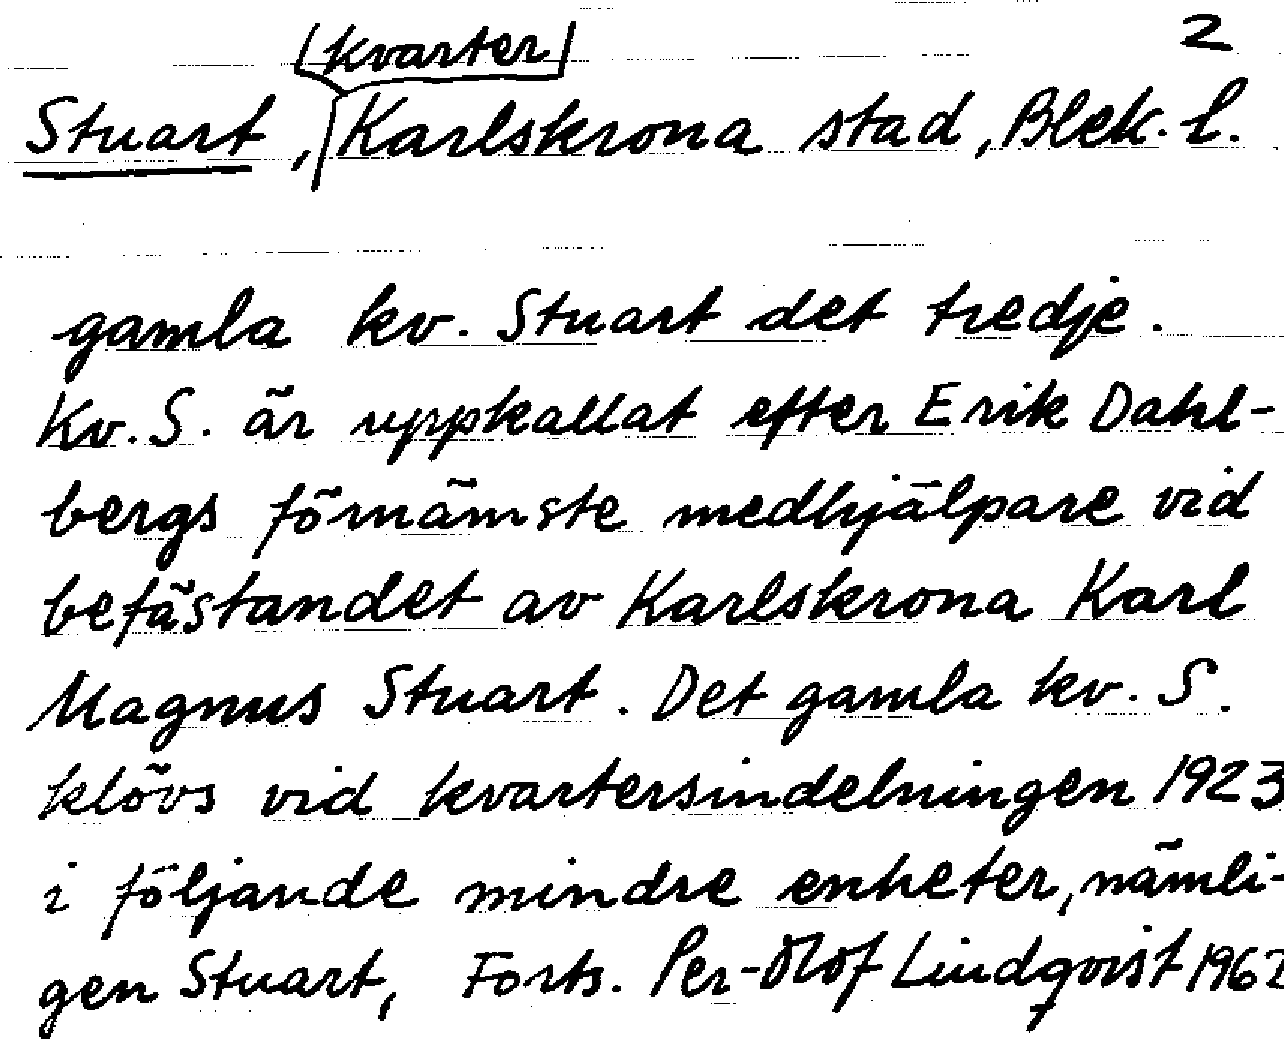 2
(kvarter)
Stuart, Karlskrona stad, Blek. l.
gamla kv. Stuart det tredje.
Kv. S. är uppkallat efter Erik Dahl-
bergs förnämste medhjälpare vid
befästandet av Karlskrona Karl
Magnus Stuart. Det gamla kv. S.
klövs vid kvartersindelningen 1923
i följande mindre enheter, nämli-
gen Stuart, Forts. Per-Olof Lindqvist 1962